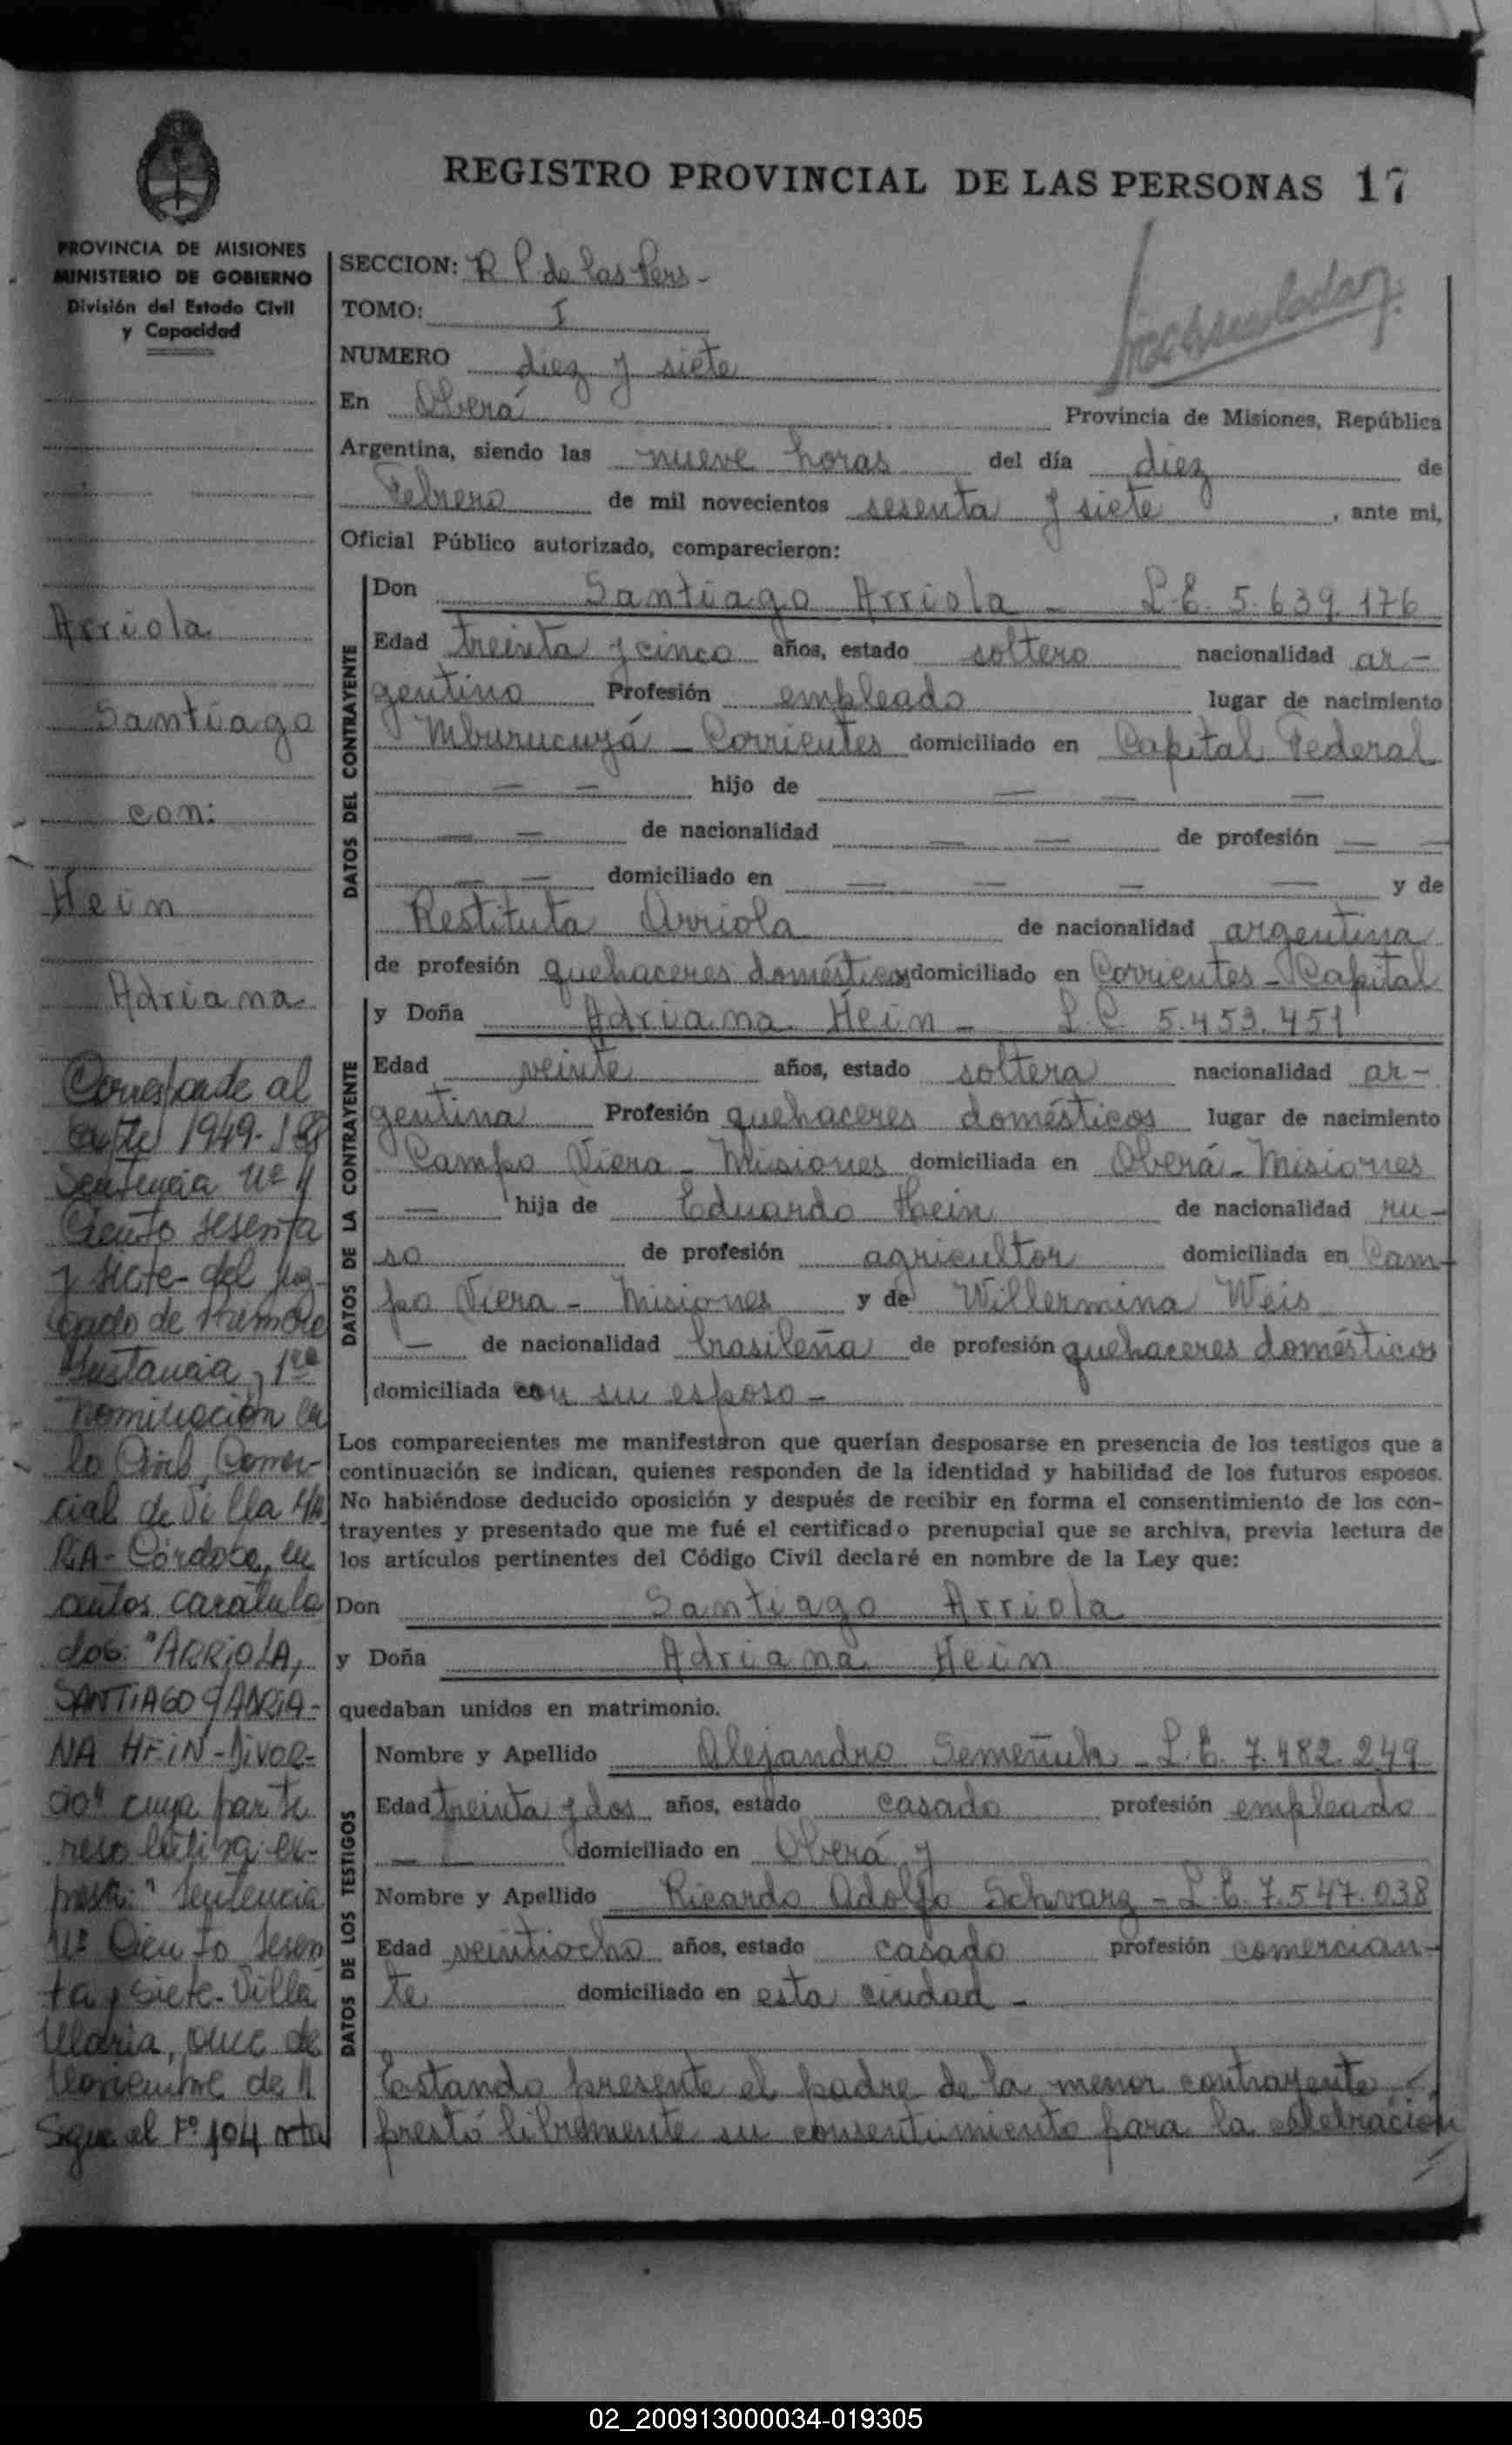 REGISTRO PROVINCIAL DE LAS PERSONAS 17
PROVINCIA DE MISIONES
MINISTERIO DE GOBIERNO
División del Estado Civil
y Capacidad
SECCION: R P de las Pers -
TOMO: I
NUMERO diez y siete
En Oberá Provincia de Misiones, República
Argentina, siendo las nueve horas del día diez de
Febrero de mil novecientos sesenta y siete, ante mi,
Oficial Público autorizado, comparecieron:
DATOS DEL CONTRAYENTE
Don Santiago Arriola - L.E. 5.639.176
Edad treinta y cinco años, estado soltero nacionalidad ar-
gentino Profesión empleado lugar de nacimiento
Mburucuyá - Corrientes domiciliado en Capital Federal
— — hijo de — — —
— — de nacionalidad — — de profesión — —
— — domiciliado en — — — — y de
Restituta Arriola de nacionalidad argentina
de profesión quehaceres domésticos domiciliado en Corrientes - Capital
DATOS DE LA CONTRAYENTE
y Doña Adriana Hein - L.C. 5.453.451
Edad veinte años, estado soltera nacionalidad ar-
gentina Profesión quehaceres domésticos lugar de nacimiento
Campo Viera - Misiones domiciliada en Oberá - Misiones
— hija de Eduardo Hein de nacionalidad ru-
so de profesión agricultor domiciliada en Cam-
po Viera - Misiones y de Willermina Weis
— de nacionalidad brasileña de profesión quehaceres domésticos
domiciliada con su esposo -
Los comparecientes me manifestaron que querían desposarse en presencia de los testigos que a
continuación se indican, quienes responden de la identidad y habilidad de los futuros esposos.
No habiéndose deducido oposición y después de recibir en forma el consentimiento de los con-
trayentes y presentado que me fué el certificado prenupcial que se archiva, previa lectura de
los artículos pertinentes del Código Civil declaré en nombre de la Ley que:
Don Santiago Arriola
y Doña Adriana Hein
quedaban unidos en matrimonio.
DATOS DE LOS TESTIGOS
Nombre y Apellido Alejandro Semeñuk - L.E. 7.482.249
Edad treinta y dos años, estado casado profesión empleado
— — domiciliado en Oberá y
Nombre y Apellido Ricardo Adolfo Schvarz - L.E. 7.547.038
Edad veintiocho años, estado casado profesión comercian-
te domiciliado en esta ciudad -
Estando presente el padre de la menor contrayente,
prestó libremente su consentimiento para la celebración
Arriola
Santiago
con:
Hein
Adriana
Corresponde al
1949-188
Sentencia Nº
Ciento sesenta
y siete - del Juz-
gado de Primera
Instancia, 1ra
Nominación en
lo Civil, Comer-
cial de Villa Ma
RiA - Córdoba, en
autos caratula
dos: "ARRIOLA,
SANTIAGO y ADRIA-
NA HEIN - DIVOR-
cio" cuya parte
resolutiva ex-
presa: "Sentencia
Nº Ciento sesen
ta y siete. Villa
María, once de
Noviembre de
Sigue al Fº 104 vta
02_200913000034-019305